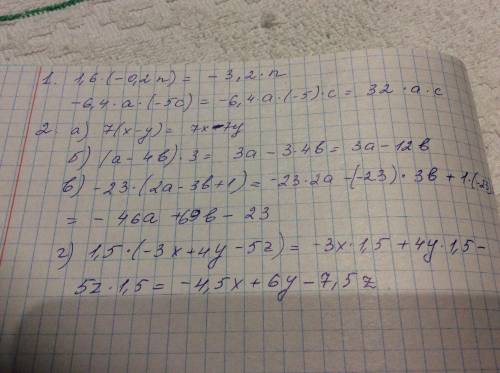 1. 1,6·(-0,2n) = -3,2·n
-6,4·a·(-5c) = -6,4·a·(-5)·c = 32·a·c
2. а) 7(x-y) = 7x-7y
б) (a-4b)·3 = 3a-3·4b = 3a-12b
в) -23·(2a-3b+1) = -23·2a-(-23)·3b+1·(-23)
= -46a+69b-23
г) 1,5·(-3x+4y-5z) = -3x·1,5+4y·1,5-
5z·1,5 = -4,5x+6y-7,5z